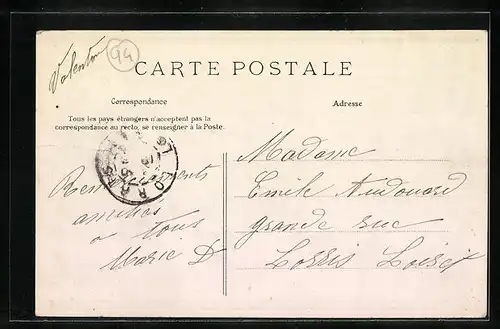 Valenton
94
CARTE POSTALE
Correspondance
Adresse
Tous les pays étrangers n'acceptent pas la
correspondance au recto, se renseigner à la Poste.
amitiés
a tous
Marie D
Madame
Emile Audouard
grande rue
Lorris Loiret